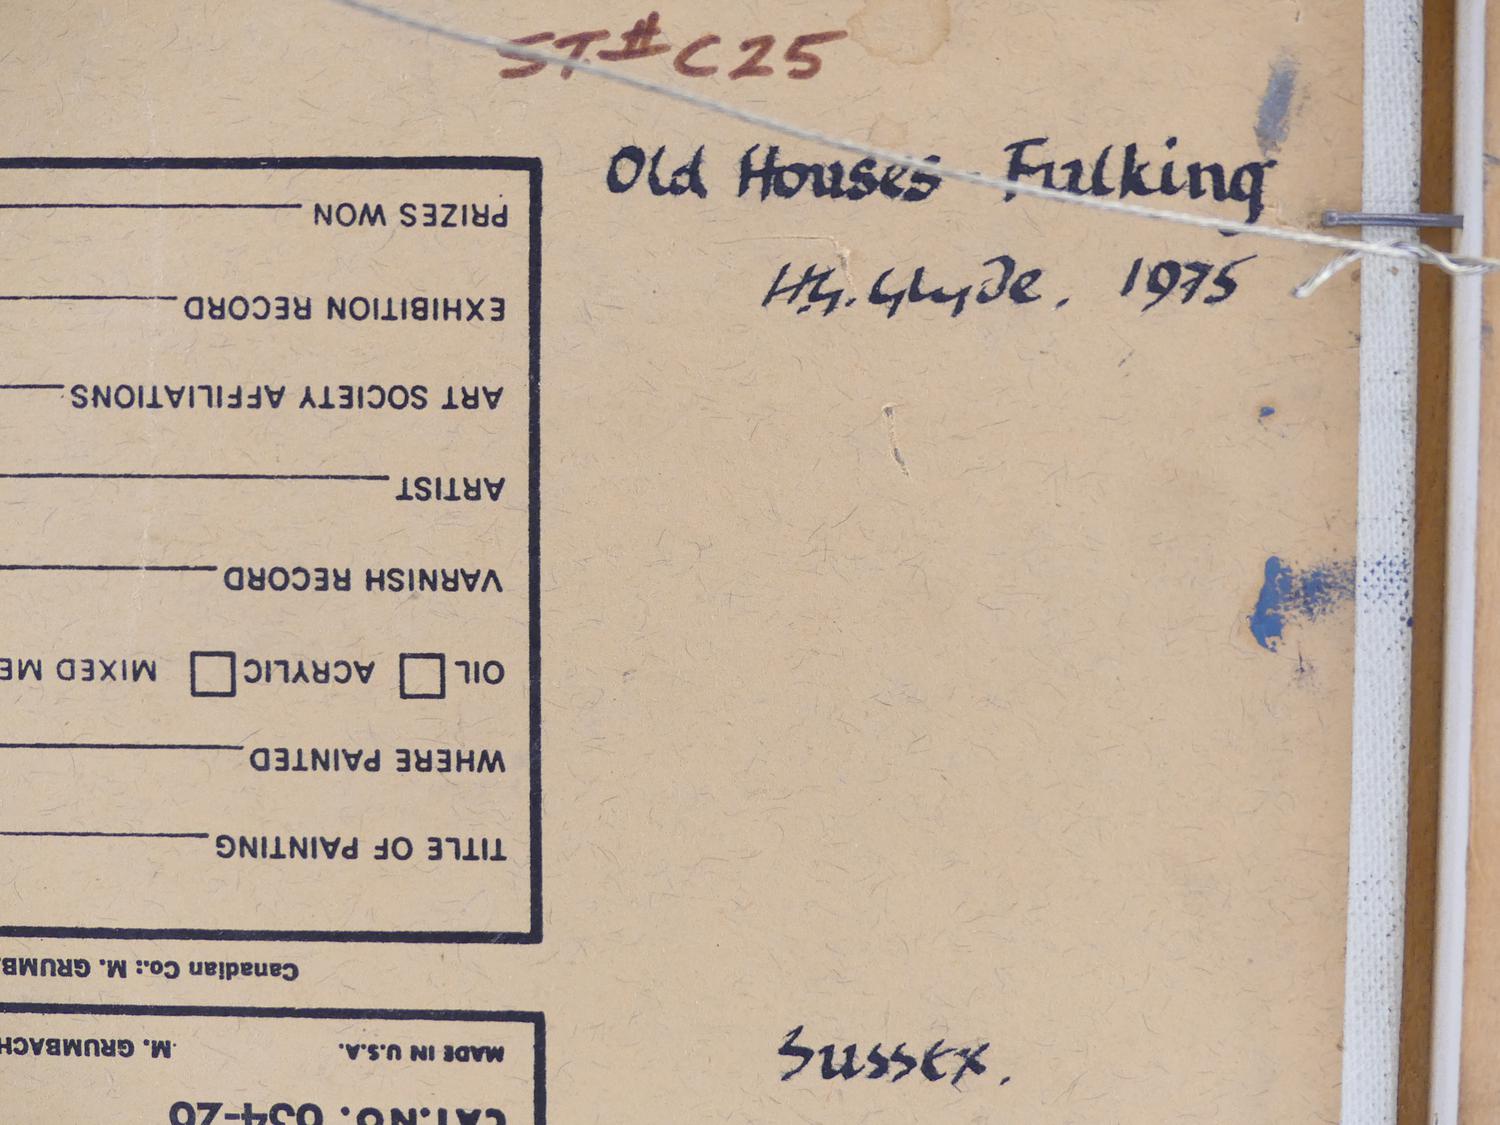 ST.# C25
Old Houses - Fulking
H.G. Glyde. 1975
Sussex.
CAT. NO. 634-20
MADE IN U.S.A. M. GRUMBACH
Canadian Co.: M. GRUMB
TITLE OF PAINTING
WHERE PAINTED
OIL ACRYLIC MIXED ME
VARNISH RECORD
ARTIST
ART SOCIETY AFFILIATIONS
EXHIBITION RECORD
PRIZES WON